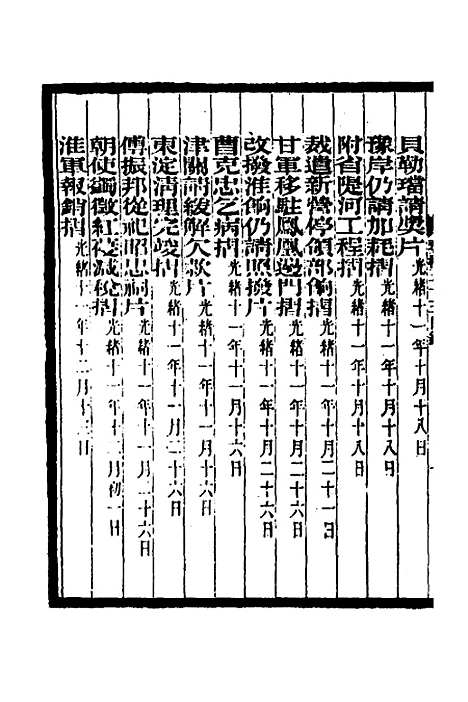 貝勒璠請獎片光緒十一年十月十八日
豫岸仍請加耗摺光緒十一年十月十八日
附省隄河工程摺光緒十一年十月十八日
裁遣新營停領部餉摺光緒十一年十月二十一日
甘軍移駐鳳凰邊門摺光緒十一年十月二十六日
改撥淮餉仍請照撥片光緒十一年十月二十六日
曹克忠乞病摺光緒十一年十一月十六日
津關請緩解欠款片光緒十一年十一月十六日
東淀清理完竣摺光緒十一年十一月二十六日
傅振邦從祀昭忠祠片光緒十一年十一月二十六日
朝使蠲徵紅葠減稅摺光緒十一年十二月初一日
淮軍報銷摺光緒十一年十二月十三日